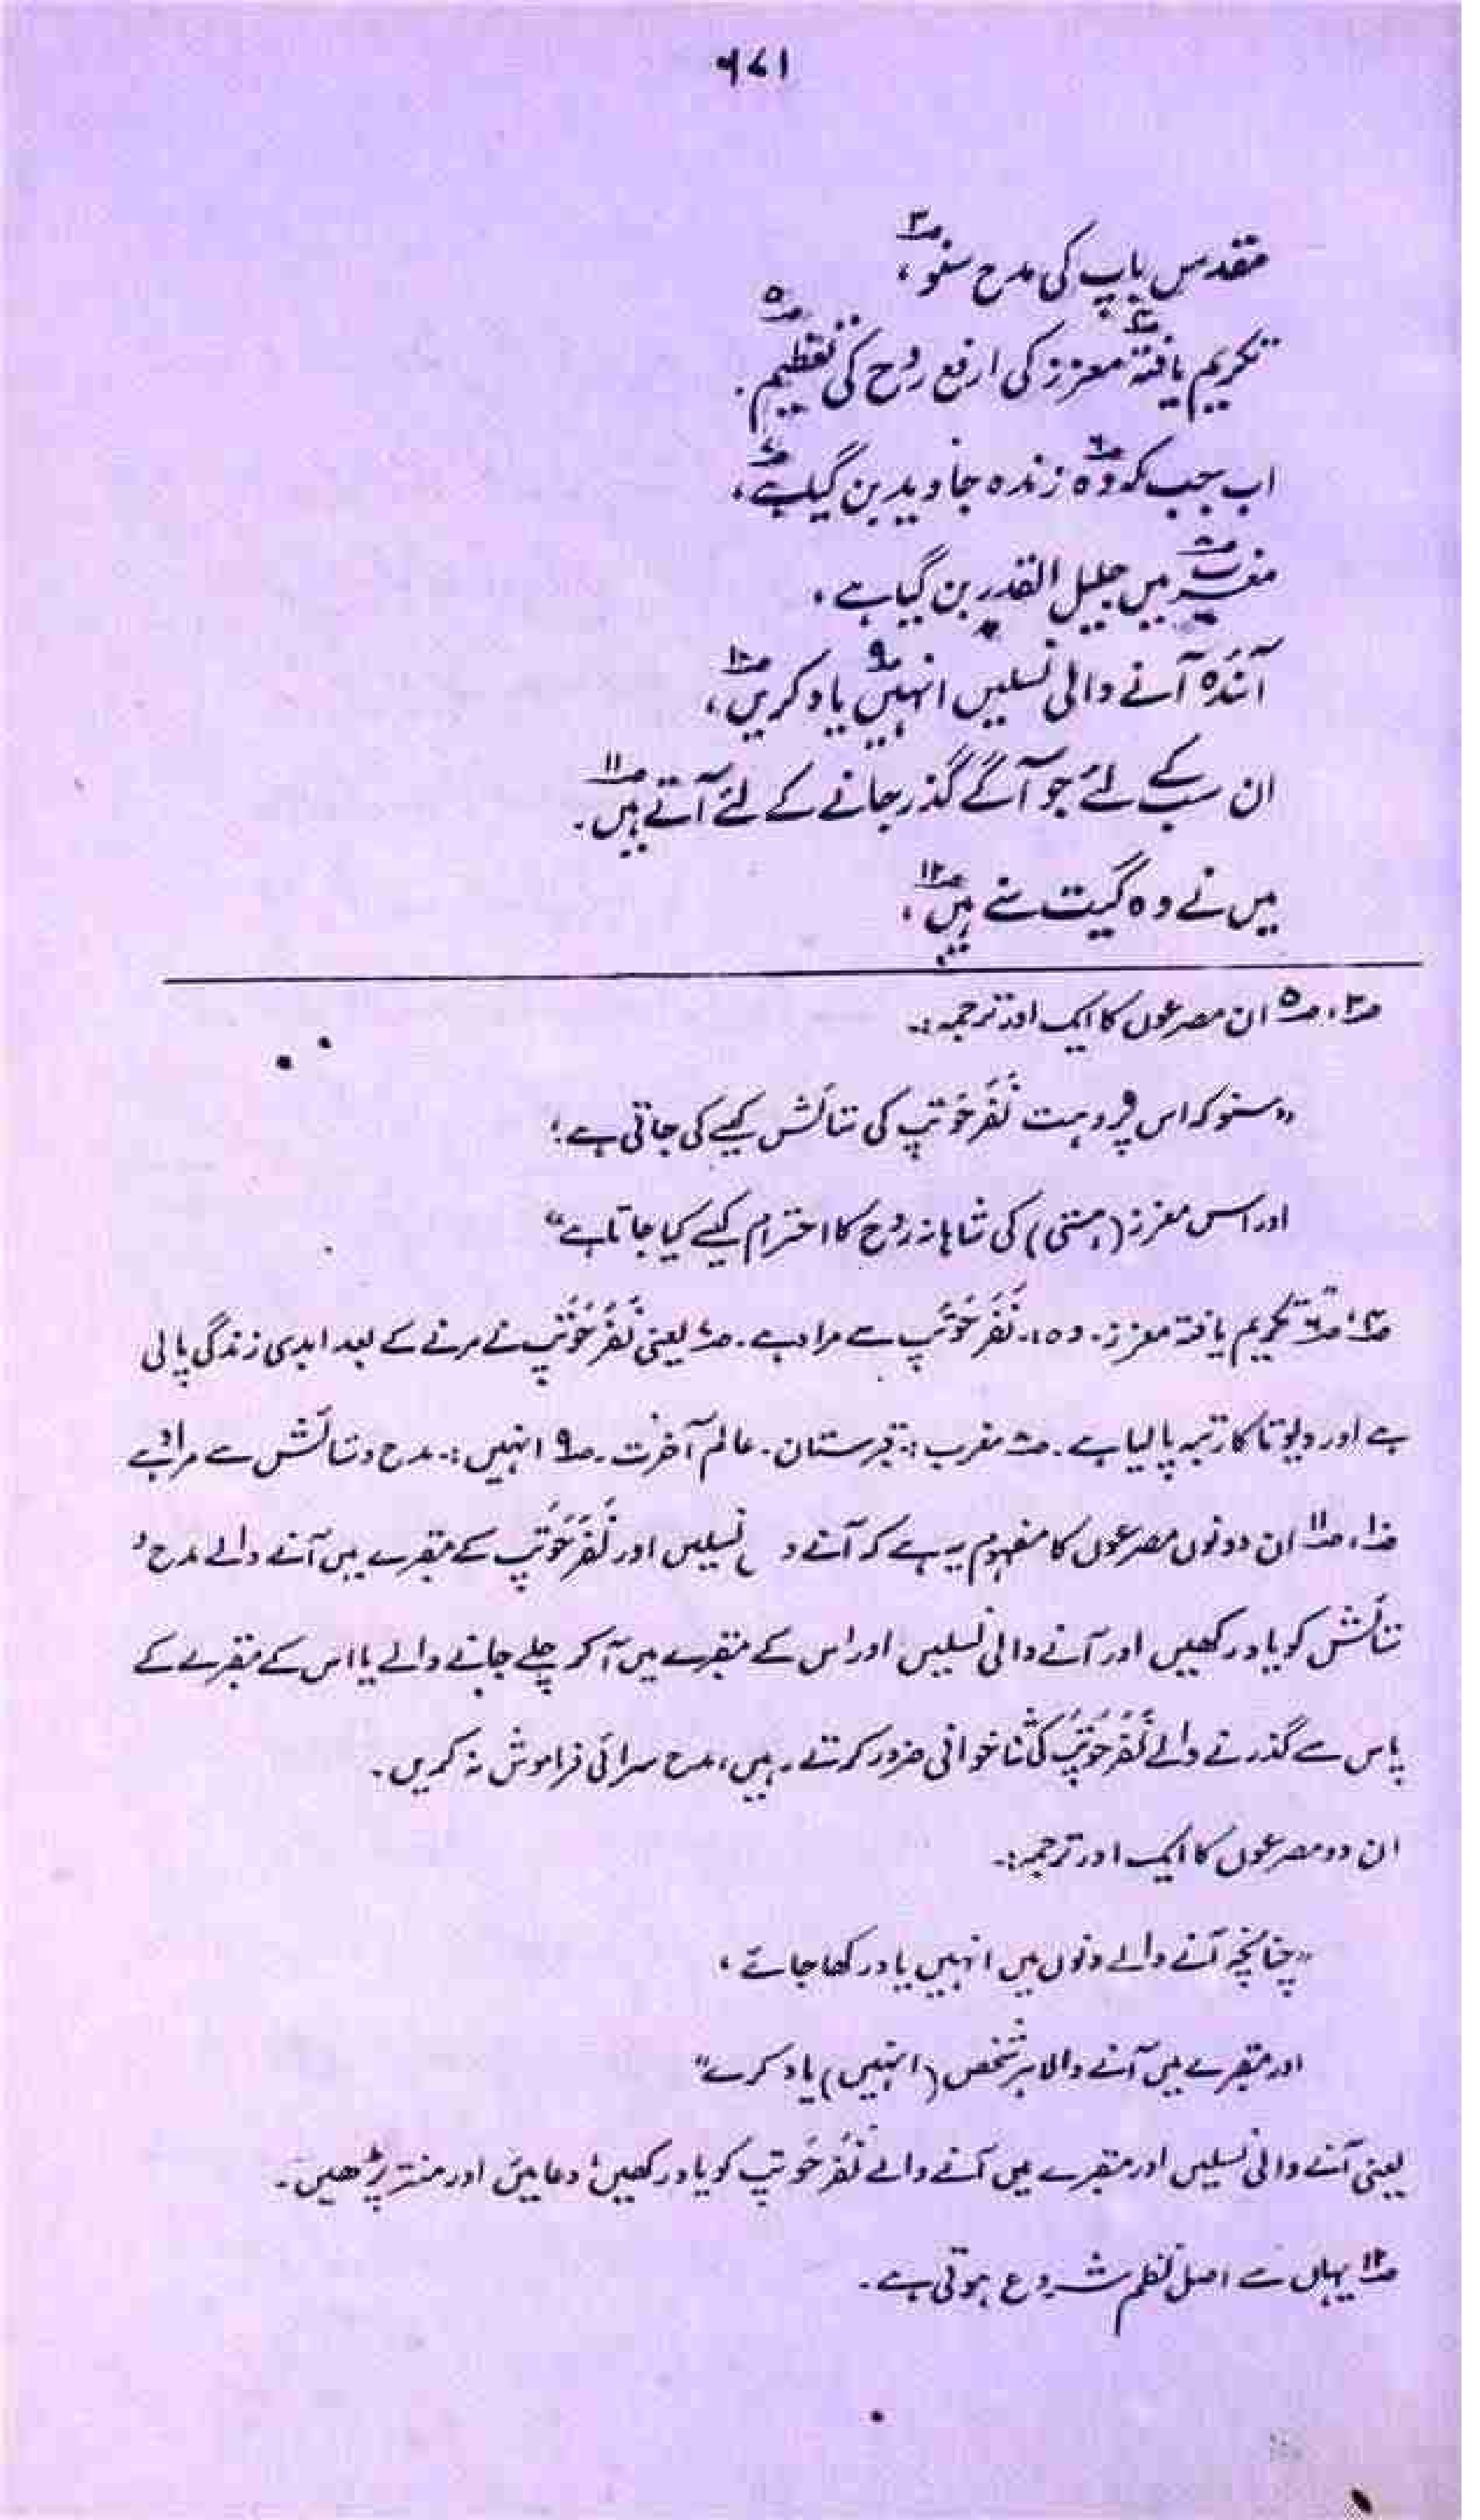 ۶۷۱
مقدس باپ کی مدح سنو،۳
تکریم یافتہ۴ معزز کی ارفع روح کی تعظیم۵۔
اب جب کہ وہ۶ زندہ جاوید بن گیا ہے۷،
مغرب۸ میں جلیل القدر بن گیا ہے،
آئندہ آنے والی نسلیں انہیں۹ یاد کریں۱۰،
ان سب کے لئے جو آگے گذر جانے کے لئے آتے ہیں۱۱۔
میں نے وہ گیت سنے ہیں۱۲،
۳، ۵ ان مصرعوں کا ایک اور ترجمہ:۔
”سنو کہ اس پروہت نَفَرحَوتپ کی ستائش کیسے کی جاتی ہے؛
اور اس معزز (ہستی) کی شاہانہ روح کا احترام کیسے کیا جاتا ہے“
۴، ۶ تکریم یافتہ معزز۔ وہ:۔ نَفَرحَوتَپ سے مراد ہے۔ ۷ یعنی نَفَرحَوتَپ نے مرنے کے بعد ابدی زندگی پالی
ہے اور دیوتا کا رتبہ پا لیا ہے۔ ۸ مغرب:۔ قبرستان۔ عالم آخرت۔ ۹ انہیں:۔ مدح و ستائش سے مراد ہے
۱۰، ۱۱ ان دونوں مصرعوں کا مفہوم یہ ہے کہ آنے و نسلیں اور نَفَرحَوتَپ کے مقبرے میں آنے والے مدح و
ستائش کو یاد رکھیں اور آنے والی نسلیں اور اس کے مقبرے میں آ کر چلے جانے والے یا اس کے مقبرے کے
پاس سے گذرنے والے نَفَرحَوتَپ کی ثنا خوانی ضرور کرتے رہیں، مدح سرائی فراموش نہ کریں۔
ان دو مصرعوں کا ایک اور ترجمہ:۔
”چنانچہ آنے والے دنوں میں انہیں یاد رکھا جائے،
اور مقبرے میں آنے والا ہر شخص (انہیں) یاد کرے“
یعنی آنے والی نسلیں اور مقبرے میں آنے والے نَفَرحَوتپ کو یاد رکھیں، دعائیں اور منتر پڑھیں۔
۱۲ یہاں سے اصل نظم شروع ہوتی ہے۔